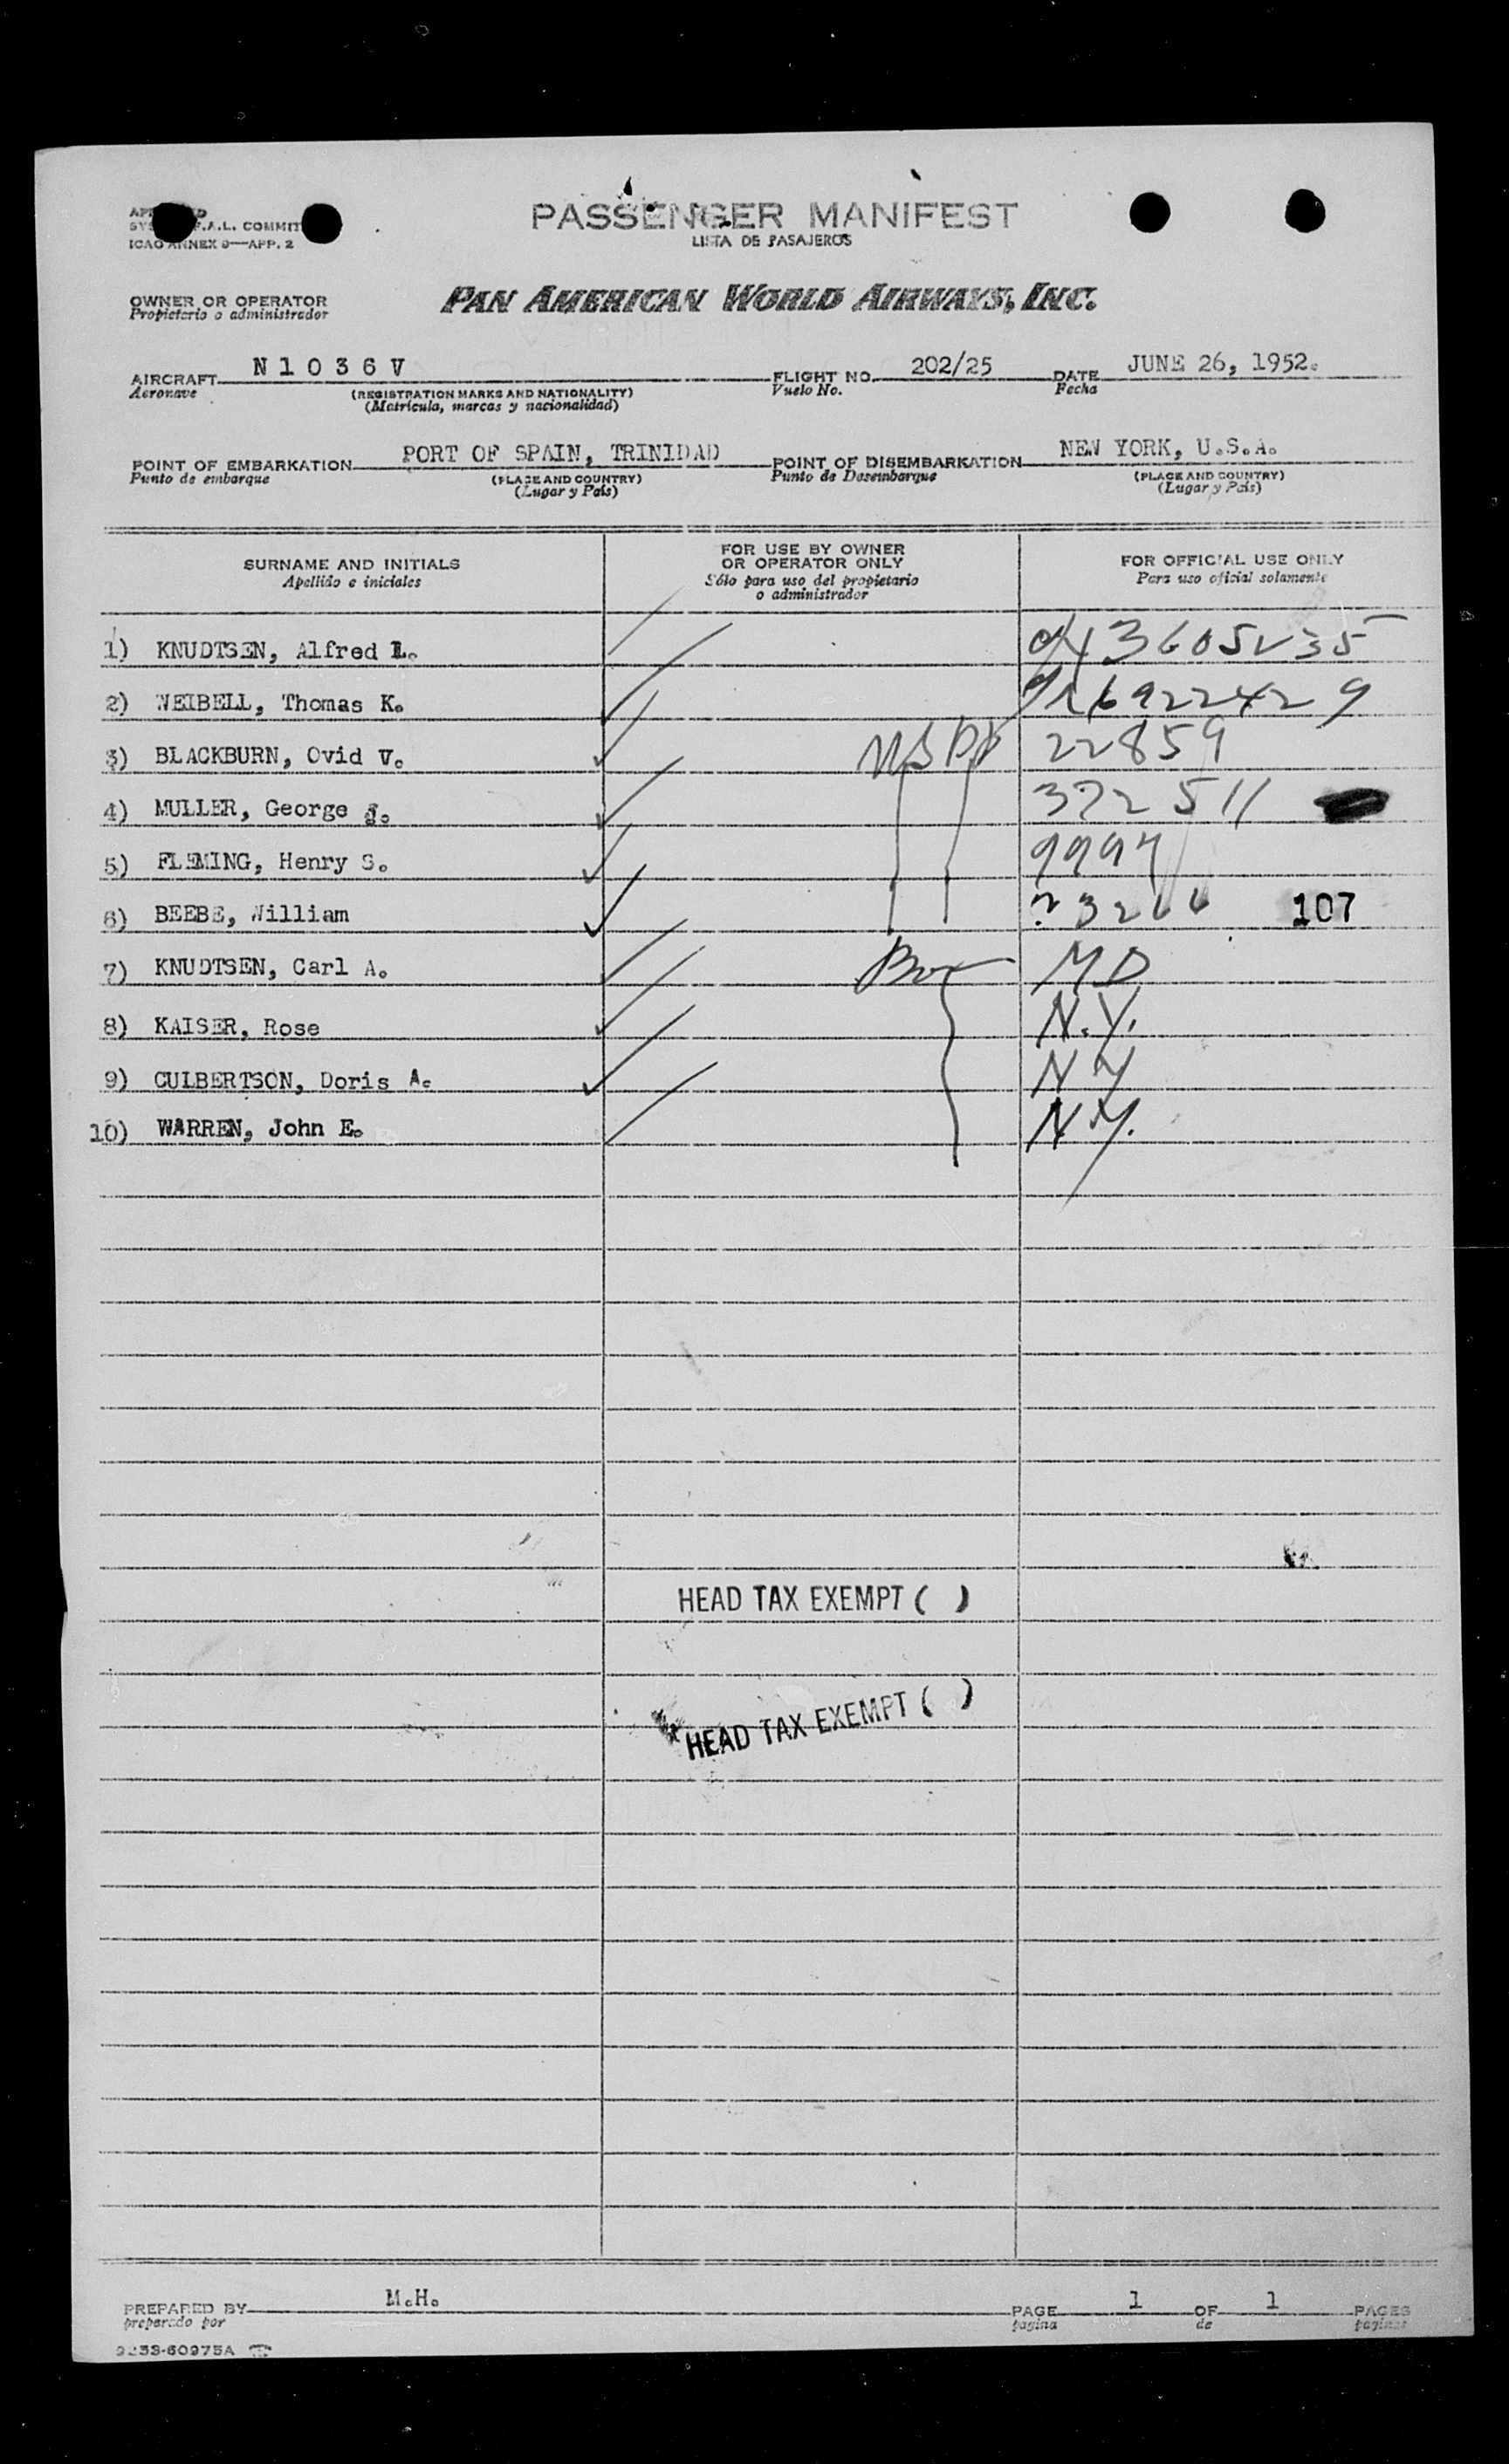 PASSENGER MANIFEST
LISTA DE PASAJEROS
F.A.L. COMMIT
ICAO ANNEX 9—APP. 2
OWNER OR OPERATOR
Propietario o administrador
PAN AMERICAN WORLD AIRWAYS, INC.
AIRCRAFT N 1 0 3 6 V FLIGHT NO. 202/25 DATE JUNE 26, 1952.
Aeronave (REGISTRATION MARKS AND NATIONALITY) Vuelo No. Fecha
(Matricula, marcas y nacionalidad)
POINT OF EMBARKATION PORT OF SPAIN, TRINIDAD POINT OF DISEMBARKATION NEW YORK, U.S.A.
Punto de embarque (PLACE AND COUNTRY) Punto de Desembarque (PLACE AND COUNTRY)
(Lugar y País) (Lugar y País)
SURNAME AND INITIALS FOR USE BY OWNER FOR OFFICIAL USE ONLY
Apellido e iniciales OR OPERATOR ONLY Para uso oficial solamente
Sólo para uso del propietario
o administrador
1) KNUDTSEN, Alfred L.
2) WEIBELL, Thomas K.
3) BLACKBURN, Ovid V. US PP 22859
4) MULLER, George 372511
5) FLEMING, Henry S.
6) BEEBE, William 107
7) KNUDTSEN, Carl A. MD
8) KAISER, Rose N.Y.
9) CULBERTSON, Doris A. NY
10) WARREN, John E. N.Y.
HEAD TAX EXEMPT ( )
HEAD TAX EXEMPT ( )
PREPARED BY M.H. PAGE 1 OF 1 PAGES
preparado por pagina de paginas